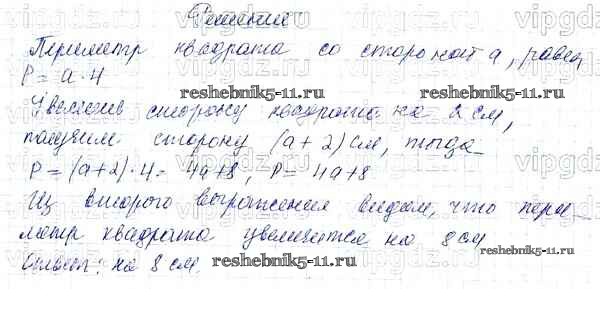 Решение
Периметр квадрата со стороной a, равен
P = a · 4
Увеличив сторону квадрата на 2 см,
получим сторону (a + 2) см, тогда
P = (a+2) · 4 = 4a+8, P = 4a+8
Из второго выражения видим, что пери-
метр квадрата увеличится на 8 см
Ответ: на 8 см.
reshebnik5-11.ru
reshebnik5-11.ru
reshebnik5-11.ru
reshebnik5-11.ru
vipgdz